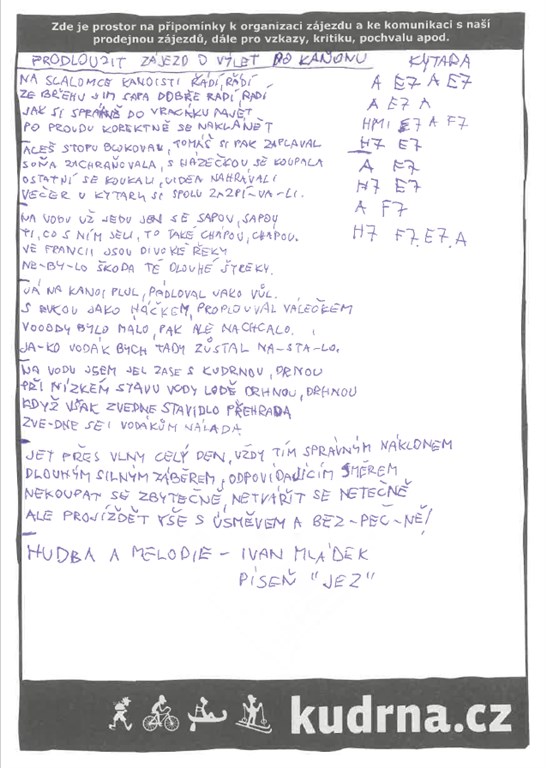 Zde je prostor na připomínky k organizaci zájezdu a ke komunikaci s naší
prodejnou zájezdů, dále pro vzkazy, kritiku, pochvalu apod.
PRODLOUŽIT ZÁJEZD O VÝLET DO KAŇONU KYTARA
NA SCALOMCE KANOISTI ŘÁDÍ, ŘÁDÍ A E7 A E7
ZE BŘEHU JIM SAPA DOBŘE RADÍ, RADÍ A E7 A
JAK SI SPRÁVNĚ DO VRACÁKU NAJET HMI E7 A F7
PO PROUDU KOREKTNĚ SE NAKLÁNĚT H7 E7
ALEŠ STOPU BLOKOVAL, TOMÁŠ SI PAK ZAPLAVAL A F7
SOŇA ZACHRAŇOVALA, S HÁZEČKOU SE KOUPALA H7 E7
OSTATNÍ SE KOUKALI, VIDEA NAHRÁVALI A F7
VEČER U KYTARY SI SPOLU ZAZPÍ-VA-LI. H7 F7, E7, A
NA VODU UŽ JEDU JEN SE SAPOU, SAPOU
TI, CO S NÍM JELI, TO TAKÉ CHÁPOU, CHÁPOU.
VE FRANCII JSOU DIVOKÉ ŘEKY
NE-BY-LO ŠKODA TÉ DLOUHÉ ŠTREKY.
JÁ NA KANOI PLUL, PÁDLOVAL JAKO VŮL.
S JUKOU JAKO HÁČKEM, PROPLOUVAL VÁLEČKEM
VOOODY BYLO MÁLO, PAK ALE NACHCALO.
JA-KO VODÁK BYCH TADY ZŮSTAL NA-STA-LO.
NA VODU JSEM JEL ZASE S KUDRNOU, DRNOU
PŘI NÍZKÉM STAVU VODY LODĚ DRHNOU, DRHNOU
KDYŽ VŠAK ZVEDNE STAVIDLO PŘEHRADA
ZVE-DNE SE I VODÁKŮM NÁLADA
JET PŘES VLNY CELÝ DEN, VŽDY TÍM SPRÁVNÝM NÁKLONEM
DLOUHÝM SILNÝM ZÁBĚREM, ODPOVÍDAJÍCÍM SMĚREM
NEKOUPAT SE ZBYTEČNĚ, NETVÁŘIT SE NETEČNĚ
ALE PROJÍŽDĚT VŠE S ÚSMĚVEM A BEZ-PEČ-NĚ!
HUDBA A MELODIE - IVAN MLÁDEK
PÍSEŇ "JEZ"
kudrna.cz